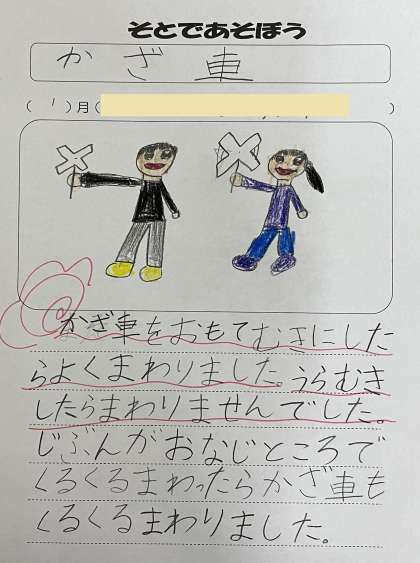 そとであそぼう
かざ車
(1)月( )
かざ車をおもてむきにした
らよくまわりました。うらむき
したらまわりませんでした。
じぶんがおなじところで
くるくるまわったらかざ車も
くるくるまわりました。